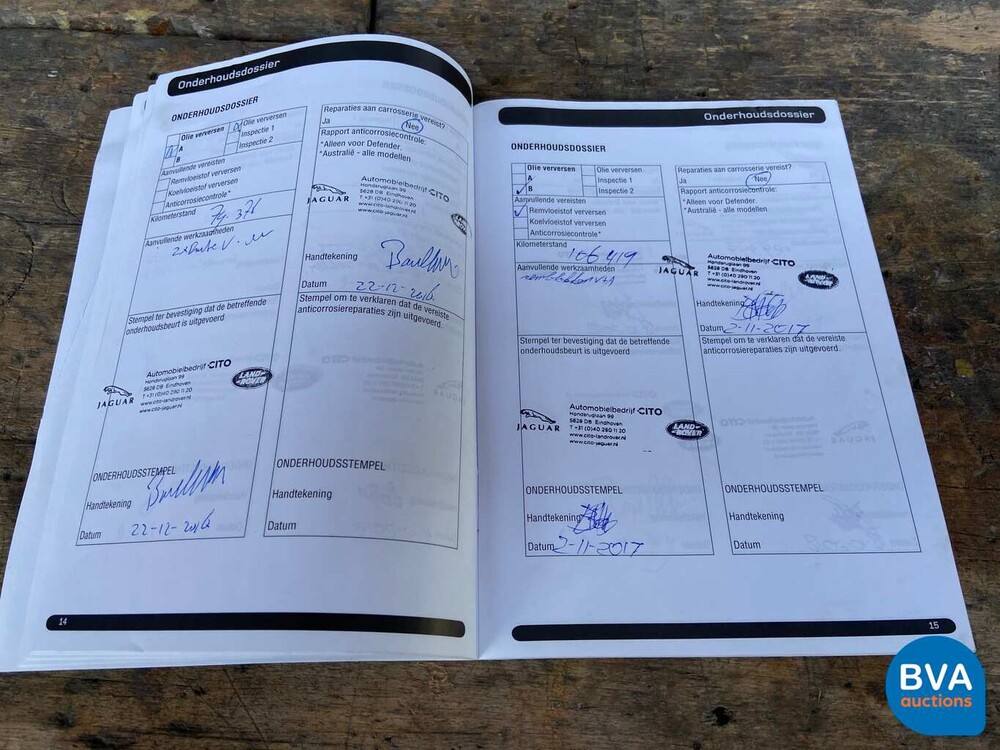 Onderhoudsdossier
ONDERHOUDSDOSSIER
Olie verversen
A
B
Olie verversen
Inspectie 1
Inspectie 2
Aanvullende vereisten
Remvloeistof verversen
Koelvloeistof verversen
Anticorrosiecontrole*
Kilometerstand
Aanvullende werkzaamheden
Stempel ter bevestiging dat de betreffende
onderhoudsbeurt is uitgevoerd
JAGUAR
Automobielbedrijf CITO
Handsruglaan 99
5628 DB Eindhoven
T +31 (0)40 290 11 20
www.cito-landrover.nl
www.cito-jaguar.nl
LAND-
ROVER
ONDERHOUDSSTEMPEL
Handtekening
Datum 22-12-2016
Reparaties aan carrosserie vereist?
Ja Nee
Rapport anticorrosiecontrole:
*Alleen voor Defender.
*Australië - alle modellen
JAGUAR
Automobielbedrijf CITO
Handsruglaan 99
5628 DB Eindhoven
T +31 (0)40 290 11 20
www.cito-landrover.nl
www.cito-jaguar.nl
Handtekening
Datum 22-12-2016
Stempel om te verklaren dat de vereiste
anticorrosiereparaties zijn uitgevoerd.
ONDERHOUDSSTEMPEL
Handtekening
Datum
14
Onderhoudsdossier
ONDERHOUDSDOSSIER
Olie verversen
A
B
Olie verversen
Inspectie 1
Inspectie 2
Aanvullende vereisten
Remvloeistof verversen
Koelvloeistof verversen
Anticorrosiecontrole*
Kilometerstand 156 419
Aanvullende werkzaamheden
Stempel ter bevestiging dat de betreffende
onderhoudsbeurt is uitgevoerd
JAGUAR
Automobielbedrijf CITO
Handsruglaan 99
5628 DB Eindhoven
T +31 (0)40 290 11 20
www.cito-landrover.nl
www.cito-jaguar.nl
LAND-
ROVER
ONDERHOUDSSTEMPEL
Handtekening
Datum 2-11-2017
Reparaties aan carrosserie vereist?
Ja Nee
Rapport anticorrosiecontrole:
*Alleen voor Defender.
*Australië - alle modellen
JAGUAR
Automobielbedrijf CITO
Handsruglaan 99
5628 DB Eindhoven
T +31 (0)40 290 11 20
www.cito-landrover.nl
www.cito-jaguar.nl
LAND-
ROVER
Handtekening
Datum 2-11-2017
Stempel om te verklaren dat de vereiste
anticorrosiereparaties zijn uitgevoerd.
ONDERHOUDSSTEMPEL
Handtekening
Datum
15
BVA
auctions